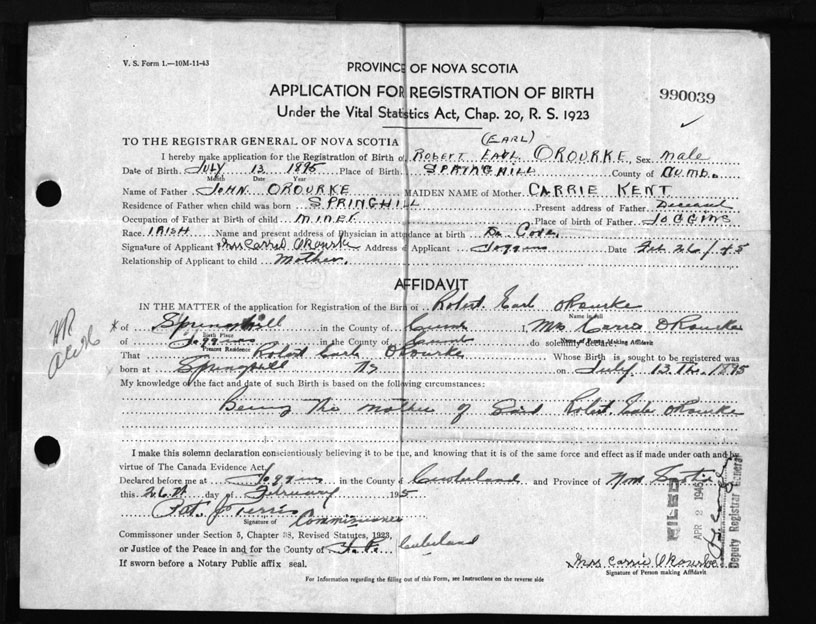 V. S. Form 1.—10M-11-43
PROVINCE OF NOVA SCOTIA
APPLICATION FOR REGISTRATION OF BIRTH
Under the Vital Statistics Act, Chap. 20, R. S. 1923
990039
TO THE REGISTRAR GENERAL OF NOVA SCOTIA
(EARL)
I hereby make application for the Registration of Birth of ROBERT EARL OROURKE, Sex male
Date of Birth JULY 13 1895 Place of Birth SPRINGHILL County of CUMB.
Month Date Year
Name of Father JOHN OROURKE MAIDEN NAME of Mother CARRIE KENT
Residence of Father when child was born SPRINGHILL Present address of Father Deceased
Occupation of Father at Birth of child MINER Place of birth of Father JOGGINS
Race IRISH Name and present address of Physician in attendance at birth Dr Code
Signature of Applicant Mrs Carrie ORourke Address of Applicant Joggins Date Feb 26/45
Relationship of Applicant to child Mother.
AFFIDAVIT
IN THE MATTER of the application for Registration of the Birth of Robert Earl ORourke
Name in full
* of Springhill in the County of Cumb ; Mrs Carrie ORourke
Birth Place
Name of Person Making Affidavit
of Joggins in the County of Cumb do solemnly declare
Present Residence
That Robert Earle ORourke Whose Birth is sought to be registered was
born at Springhill NS on July 13th 1895
My knowledge of the fact and date of such Birth is based on the following circumstances:
Being The mother of Said Robert Earle ORourke
I make this solemn declaration conscientiously believing it to be true, and knowing that it is of the same force and effect as if made under oath and by
virtue of The Canada Evidence Act.
Declared before me at Joggins in the County of Cumberland and Province of Nova Scotia
this 26th day of February 195
Signature of Commissioner
Commissioner under Section 5, Chapter 38, Revised Statutes, 1923,
or Justice of the Peace in and for the County of Cumberland
If sworn before a Notary Public affix seal.
FILED
APR 2 1945
Deputy Registrar General
Mrs Carrie ORourke
Signature of Person making Affidavit
For Information regarding the filling out of this Form, see Instructions on the reverse side